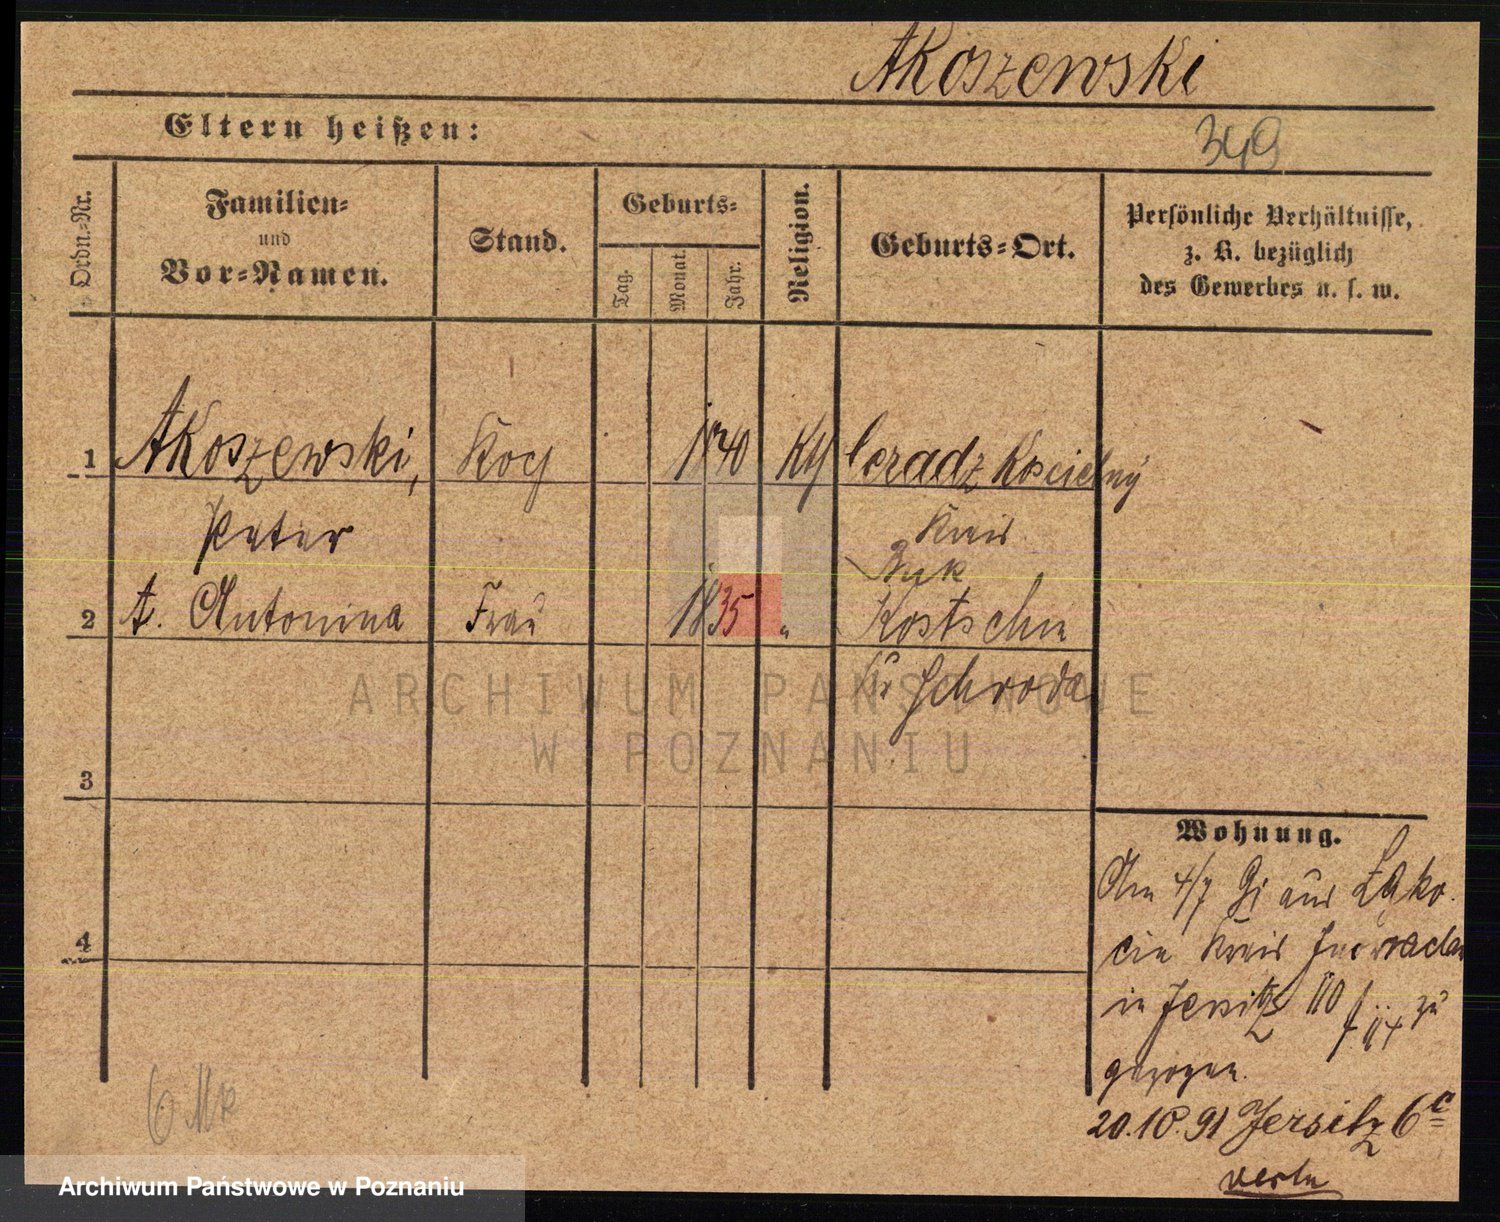 Akoszewski
Eltern heißen:
349
Ordn.-Nr.
Familien-
und
Vor-Namen.
Stand.
Geburts-
Tag.
Monat.
Jahr.
Religion.
Geburts-Ort.
Persönliche Verhältnisse,
z. B. bezüglich
des Gewerbes u. s. w.
1 Akoszewski, 1840 Ceradz Koscielny
Peter Kreis
Buk
2 A. Antonina Frau 1835 " Kostschin
Kr Schroda
3
4
Wohnung.
Am 4/7 91 aus Łąko
cin Kreis
in Jersitz 110 zu
gezogen.
20.10.91 Jersitz 6c
6 Mk
ARCHIWUM PAŃSTWOWE
W POZNANIU
Archiwum Państwowe w Poznaniu